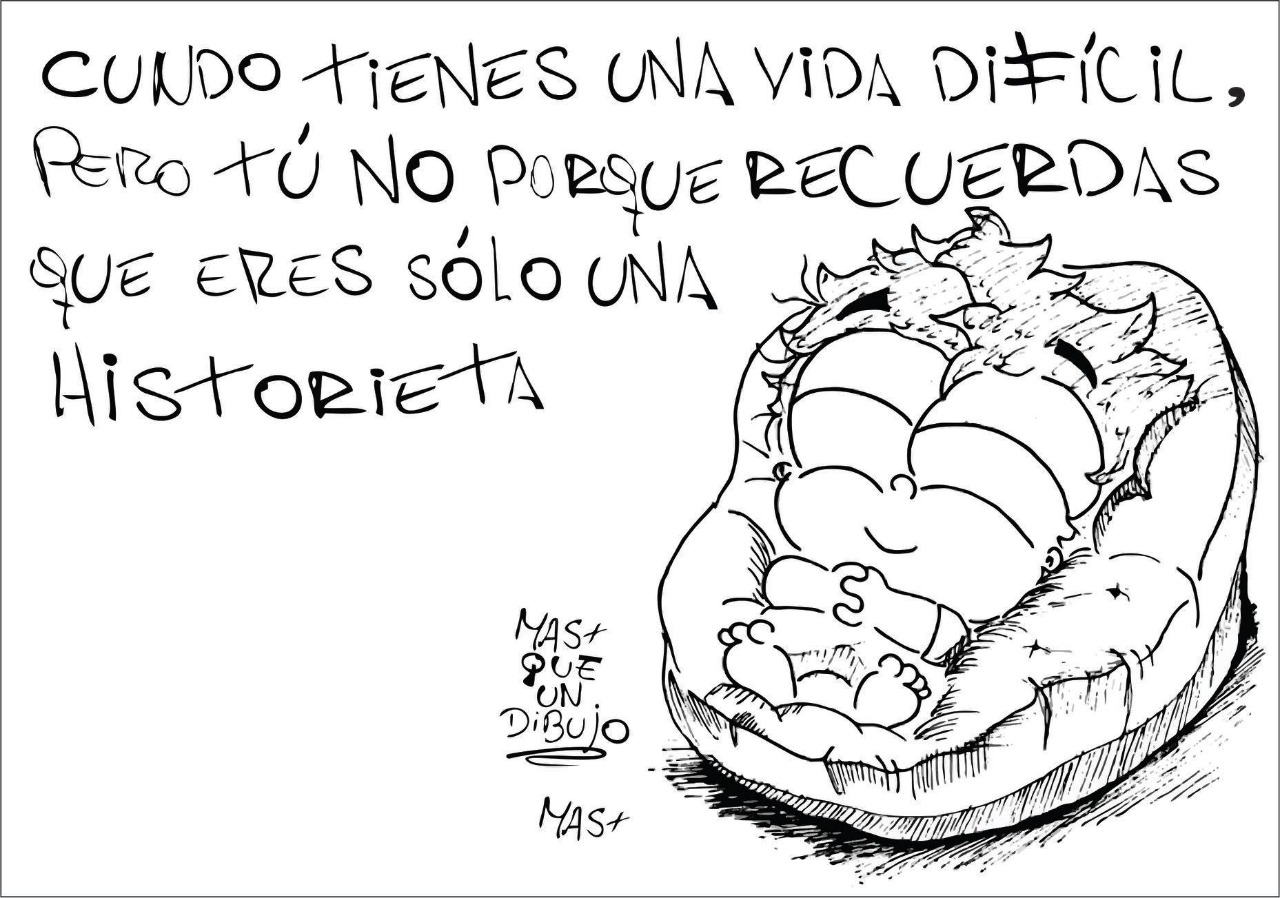 CUNDO TIENES UNA VIDA DIFÍCIL,
PERO TÚ NO PORQUE RECUERDAS
QUE ERES SÓLO UNA
HISTORIETA
MAS+
QUE
UN
DIBUJO
MAS+